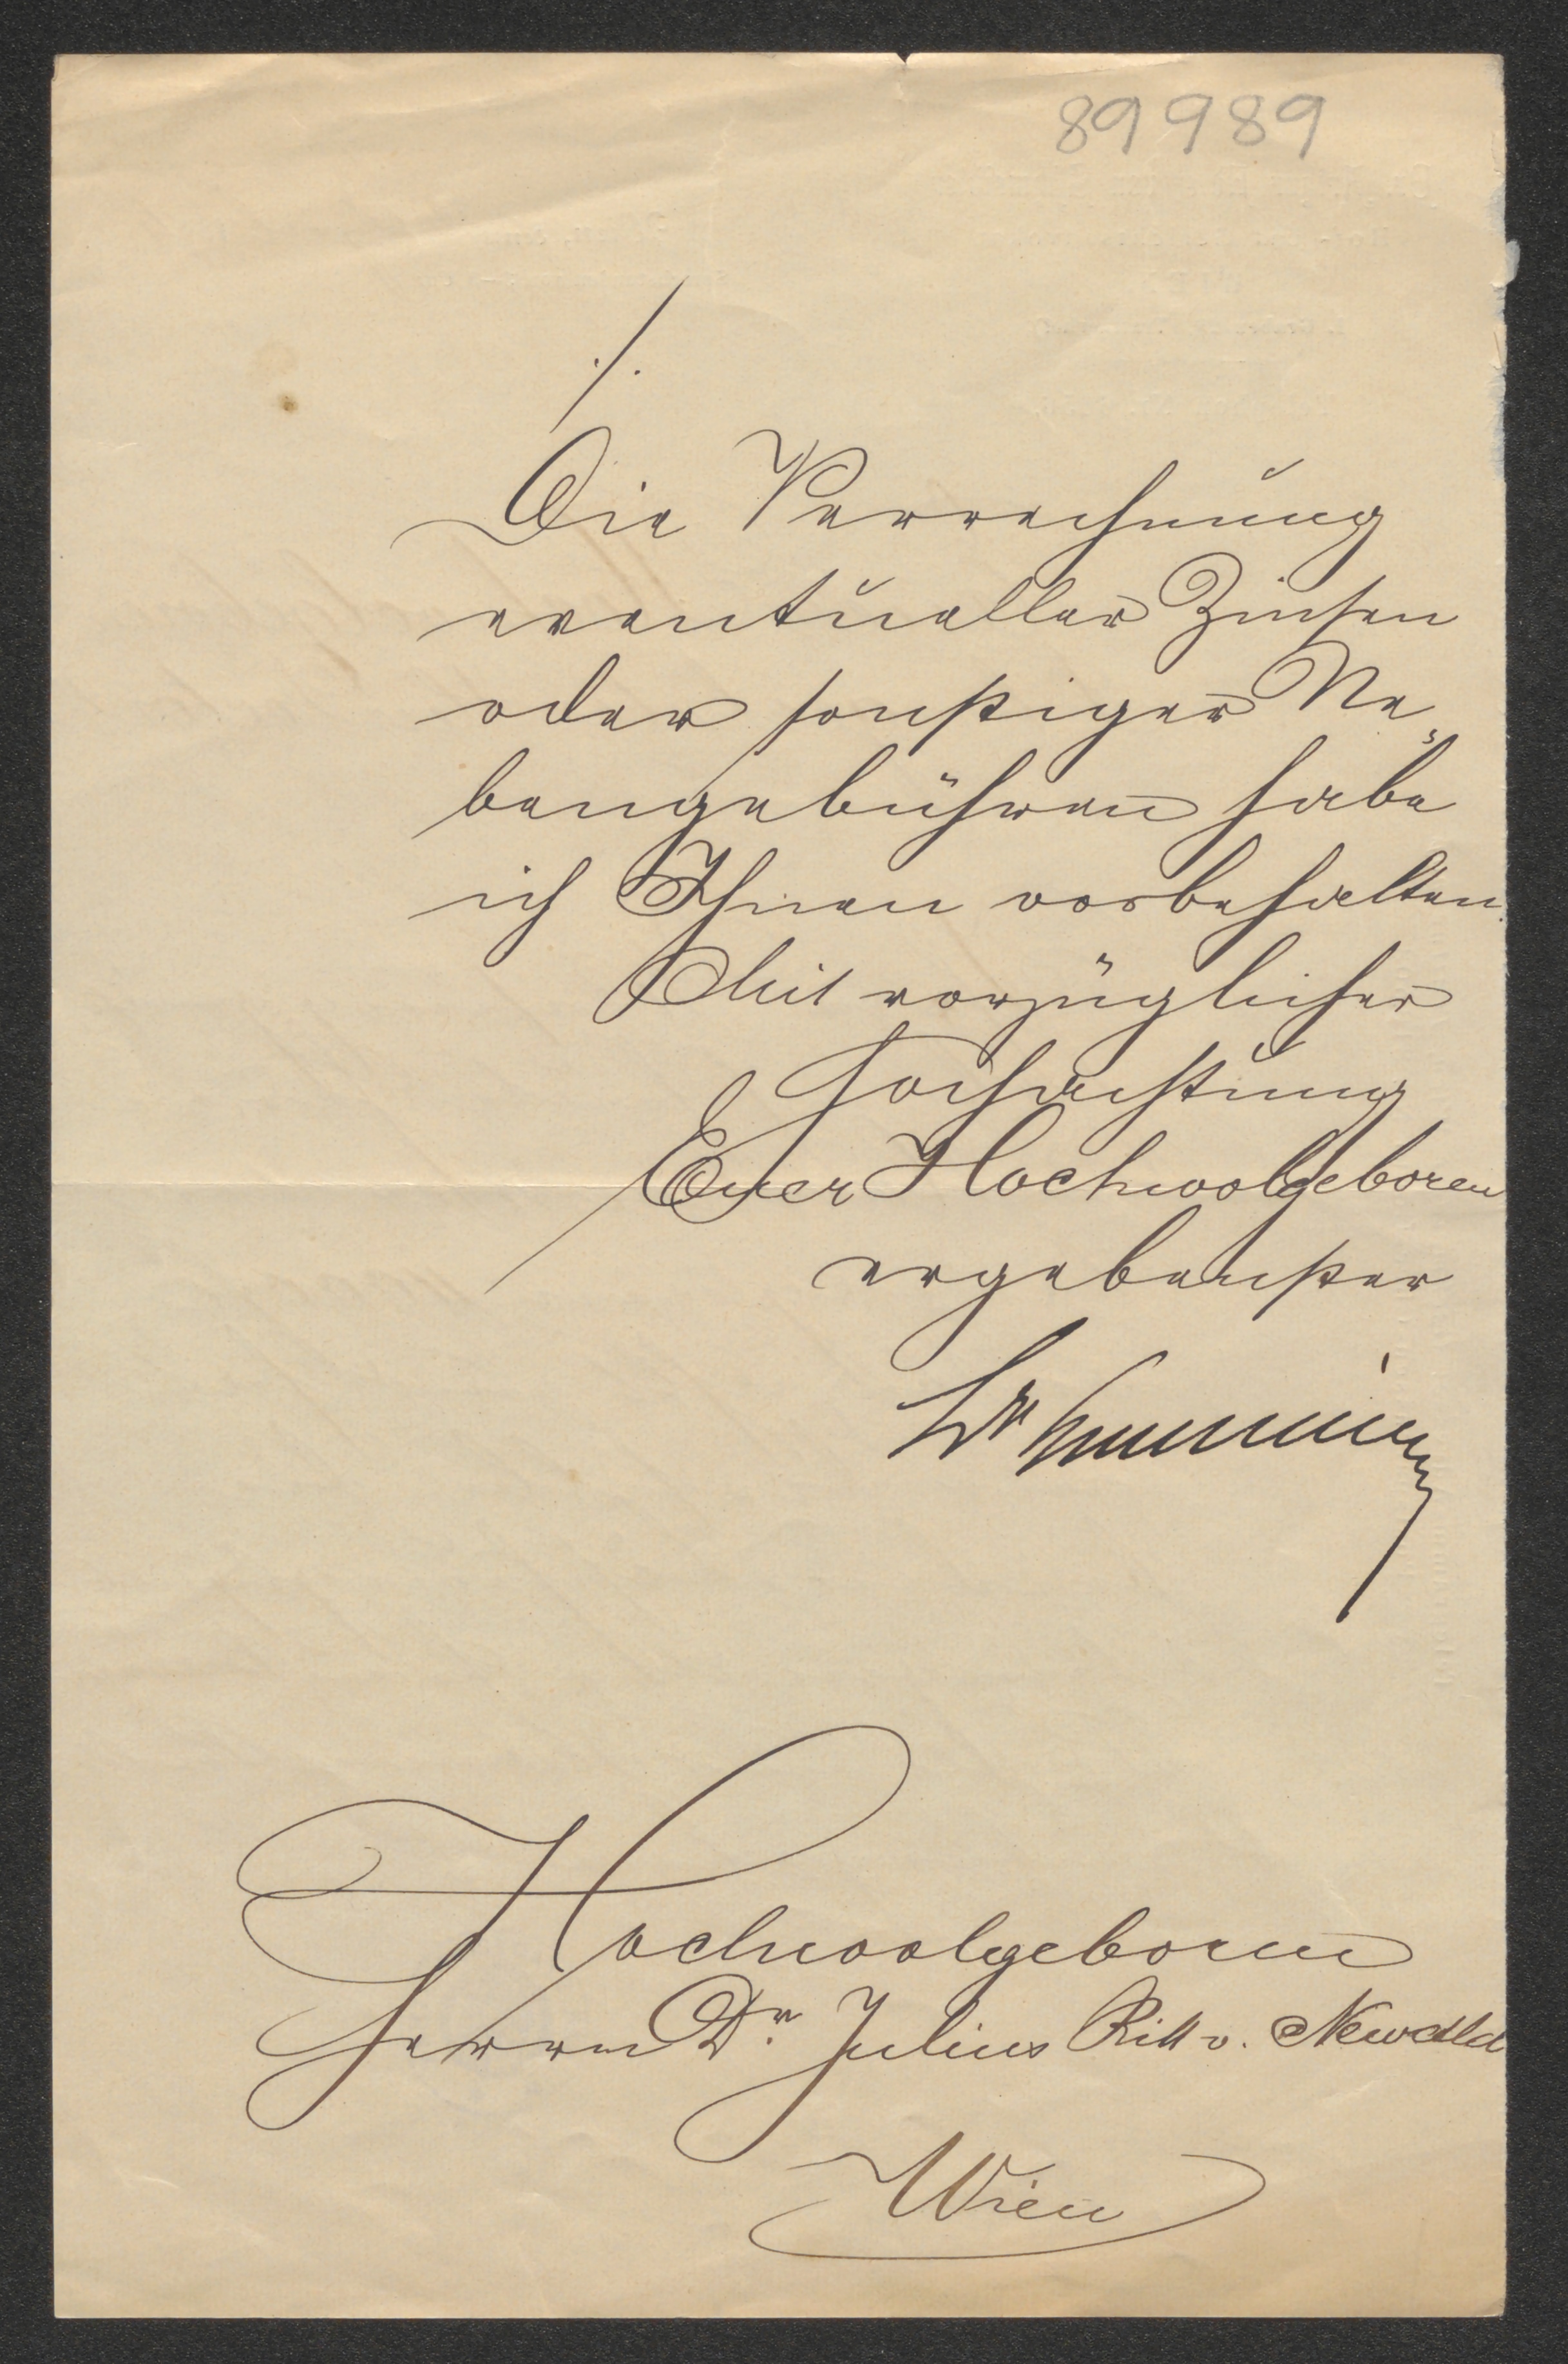 89989
./.
Die Verrechnung
eventueller Zinsen
oder sonstiger Ne„
bengebühren habe
ich Ihnen vorbehalten.
Mit vorzüglicher
Hochachtung
Euer Hochwolgeboren
ergebenster
Dr
Hochwolgeboren
Herrn Dr. Julius Ritt v. Newald
Wien